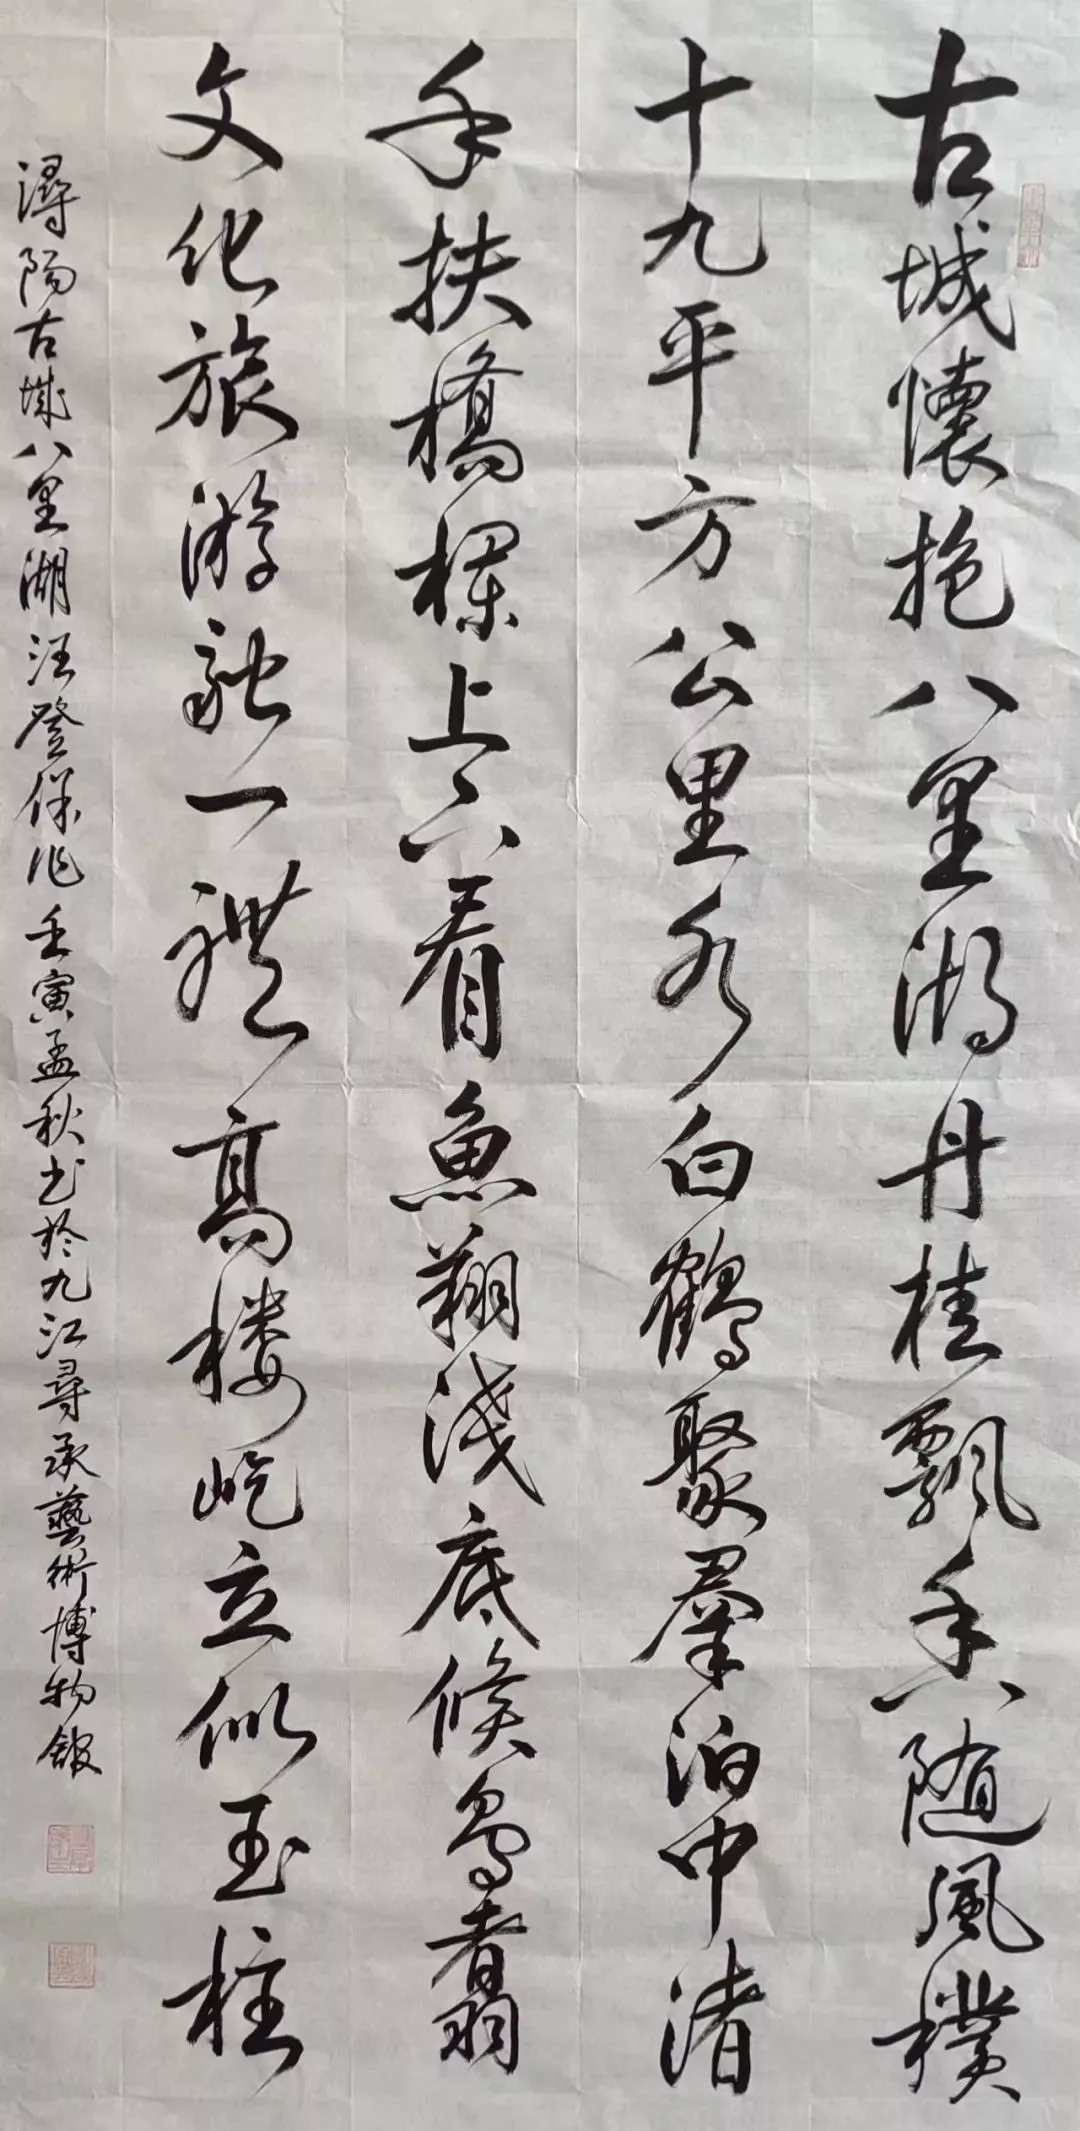 古城懷抱八里湖丹桂飄香隨風樸
十九平方公里水白鶴聚羣泊中渚
手扶橋欄上下看魚翔淺底候鳥翥
文化旅游融一體高楼屹立似玉柱
潯陽古城八里湖汪登保作壬寅孟秋书於九江尋承藝術博物館